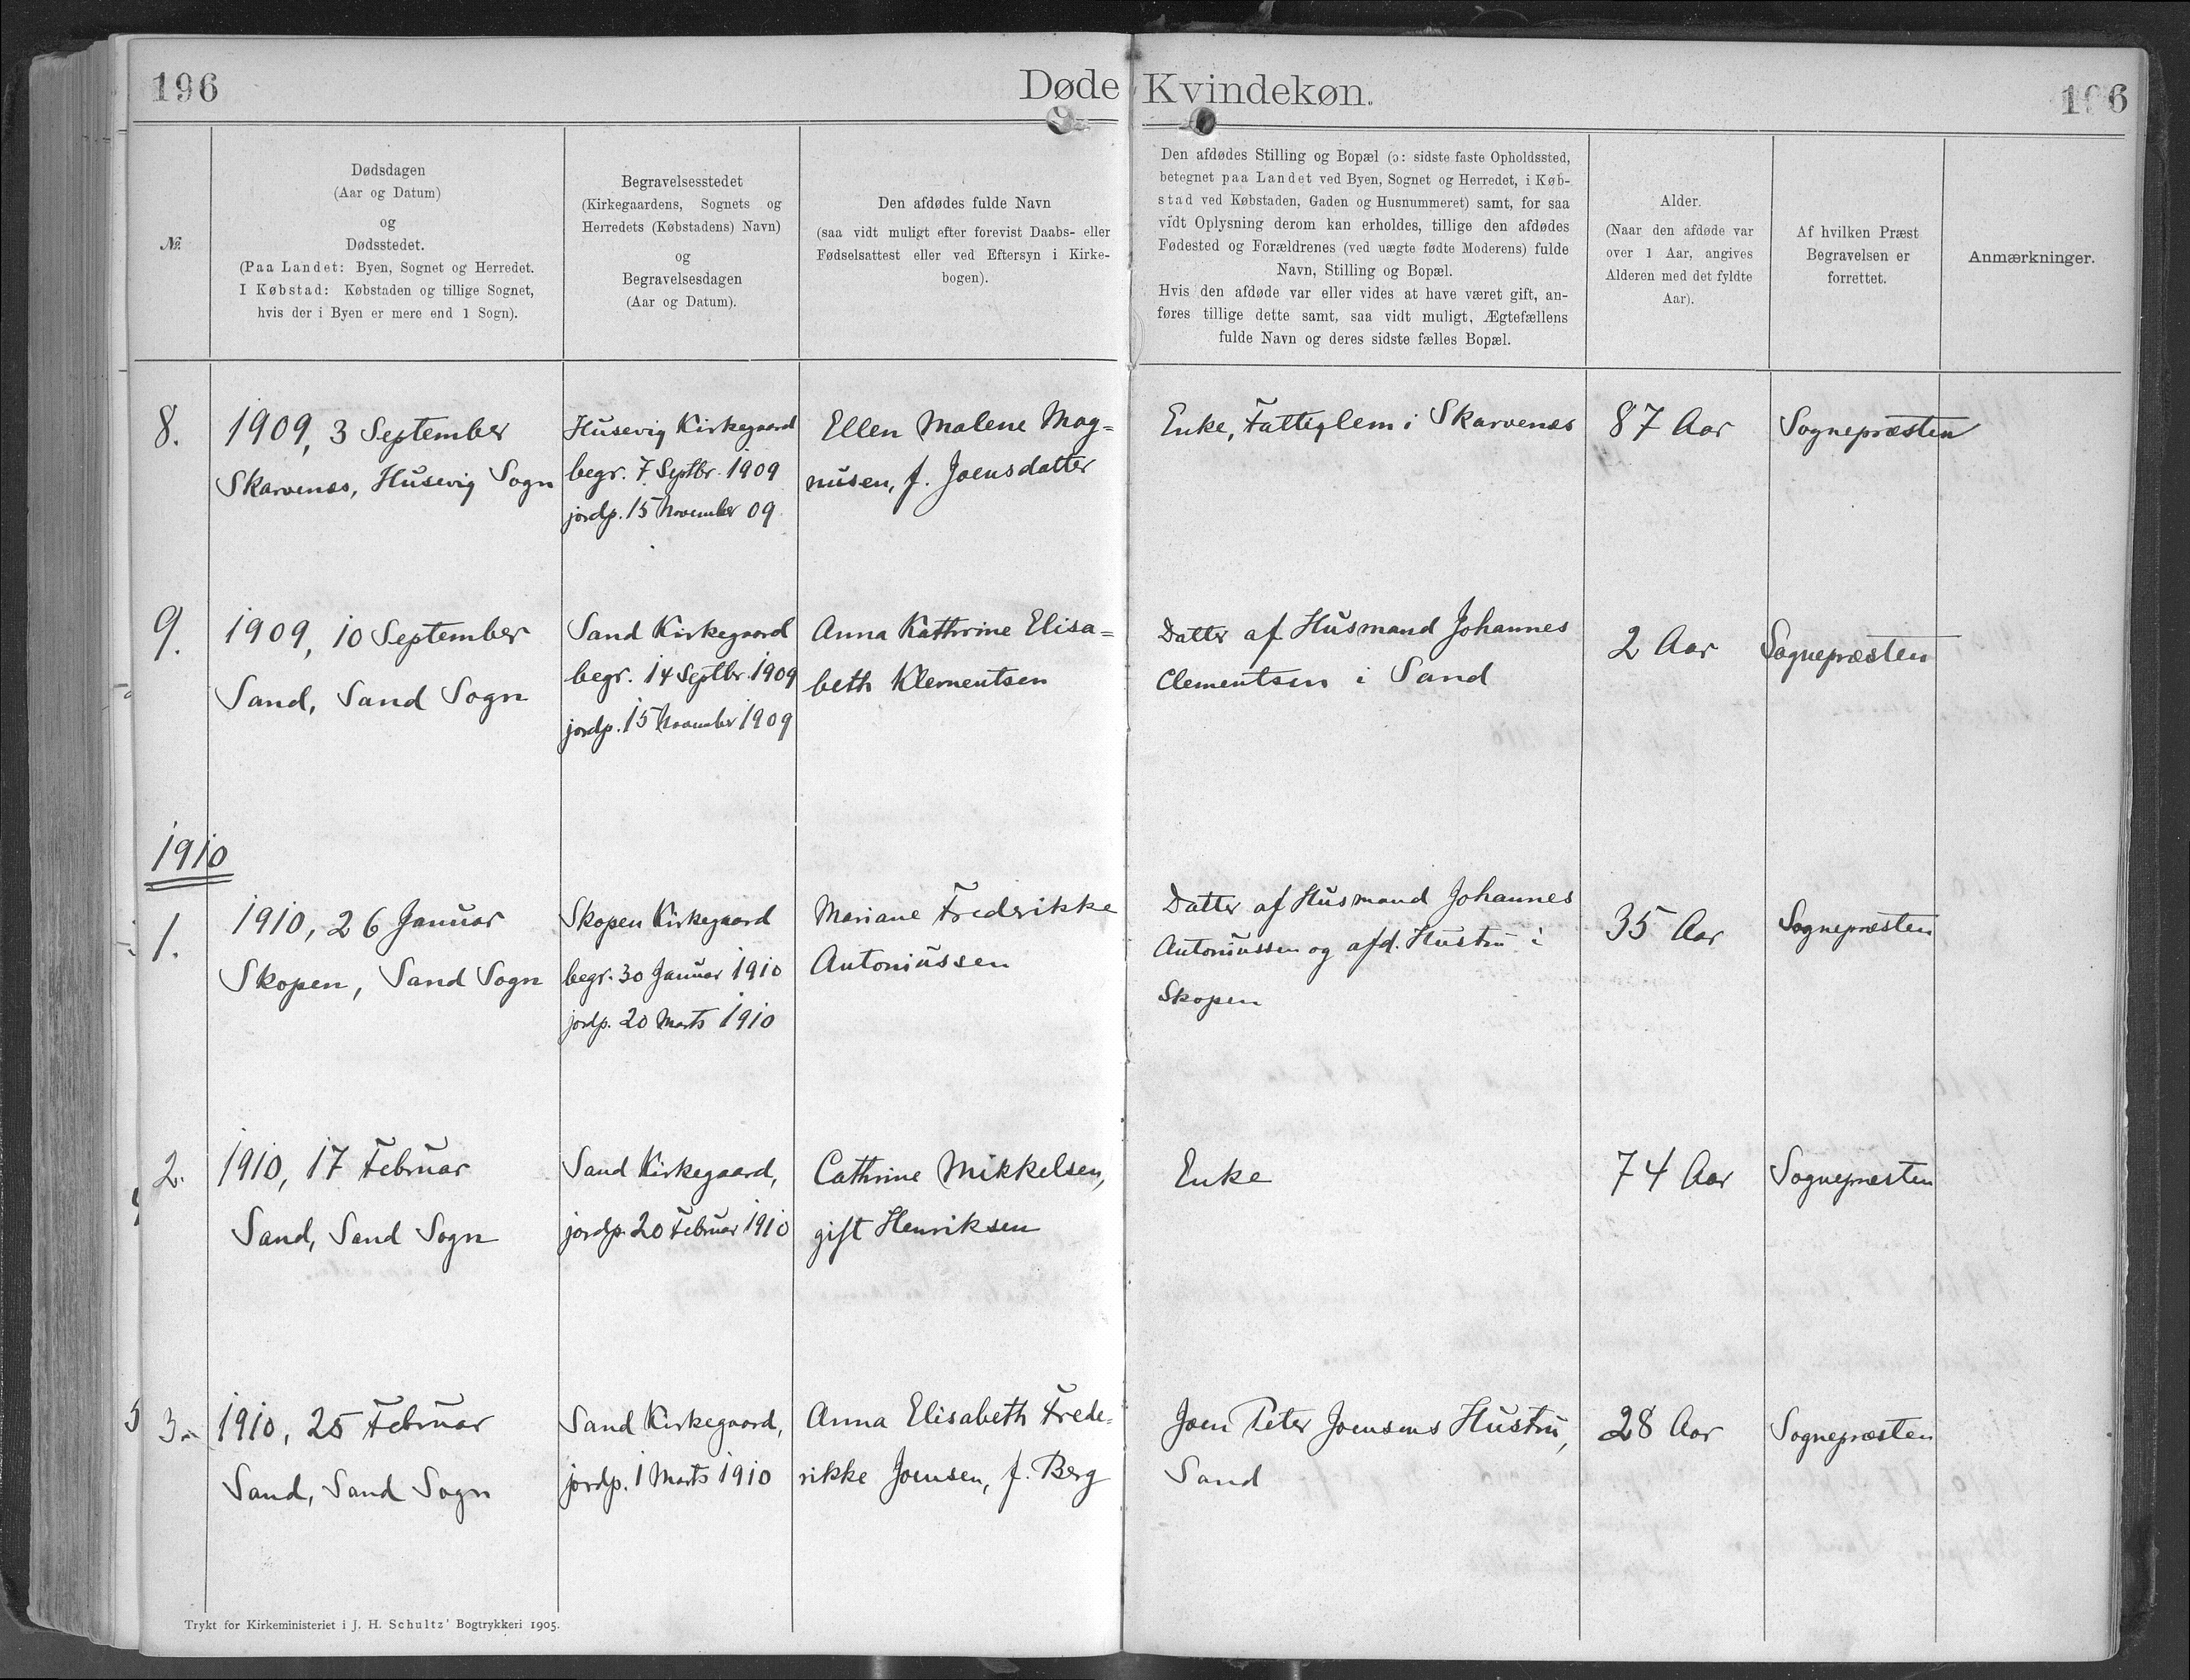 196
Døde Kvindekøn.
196
№
Dødsdagen
(Aar og Datum)
og
Dødsstedet.
(Paa Landet: Byen, Sognet og Herredet.
I Købstad: Købstaden og tillige Sognet,
hvis der i Byen er mere end 1 Sogn).
Begravelsesstedet
(Kirkegaardens, Sognets og
Herredets (Købstadens) Navn)
og
Begravelsesdagen
(Aar og Datum).
Den afdødes fulde Navn
(saa vidt muligt efter forevist Daabs- eller
Fødselsattest eller ved Eftersyn i Kirke-
bogen).
Den afdødes Stilling og Bopæl (ɔ: sidste faste Opholdssted,
betegnet paa Landet ved Byen, Sognet og Herredet, i Køb-
stad ved Købstaden, Gaden og Husnummeret) samt, for saa
vidt Oplysning derom kan erholdes, tillige den afdødes
Fødested og Forældrenes (ved uægte fødte Moderens) fulde
Navn, Stilling og Bopæl.
Hvis den afdøde var eller vides at have været gift, an-
føres tillige dette samt, saa vidt muligt, Ægtefællens
fulde Navn og deres sidste fælles Bopæl.
Alder.
(Naar den afdøde var
over 1 Aar, angives
Alderen med det fyldte
Aar).
Af hvilken Præst
Begravelsen er
forrettet.
Anmærkninger.
8.
1909, 3 September
Skarvenæs, Husevig Sogn
Husevig Kirkegaard
begr. 7 Septbr. 1909
jordp. 15 November 09
Ellen Malene Mag=
nusen, f. Joensdatter
Enke, Fattiglem i Skarvenæs
87 Aar
Sognepræsten
9.
1909, 10 September
Sand, Sand Sogn
Sand Kirkegaard
begr. 14 Septbr. 1909
jordp. 15 November 1909
Anna Kathrine Elisa=
beth Klementsen
Datter af Husmand Johannes
Clementsen i Sand
2 Aar
Sognepræsten
1910
1.
1910, 26 Januar
Skopen, Sand Sogn
Skopen Kirkegaard
begr. 30 Januar 1910
jordp. 20 Marts 1910
Mariane Frederikke
Antoniussen
Datter af Husmand Johannes
Antoniussen og afd. Hustru i
Skopen
35 Aar
Sognepræsten
2.
1910, 17 Februar
Sand, Sand Sogn
Sand Kirkegaard,
jordp. 20 Februar 1910
Cathrine Mikkelsen,
gift Henriksen
Enke
74 Aar
Sognepræsten
3.
1910, 25 Februar
Sand, Sand Sogn
Sand Kirkegaard,
jordp. 1 Marts 1910
Anna Elisabeth Frede=
rikke Joensen, f. Berg
Joen Peter Joensens Hustru,
Sand
28 Aar
Sognepræsten
Trykt for Kirkeministeriet i J. H. Schultz' Bogtrykkeri 1905.